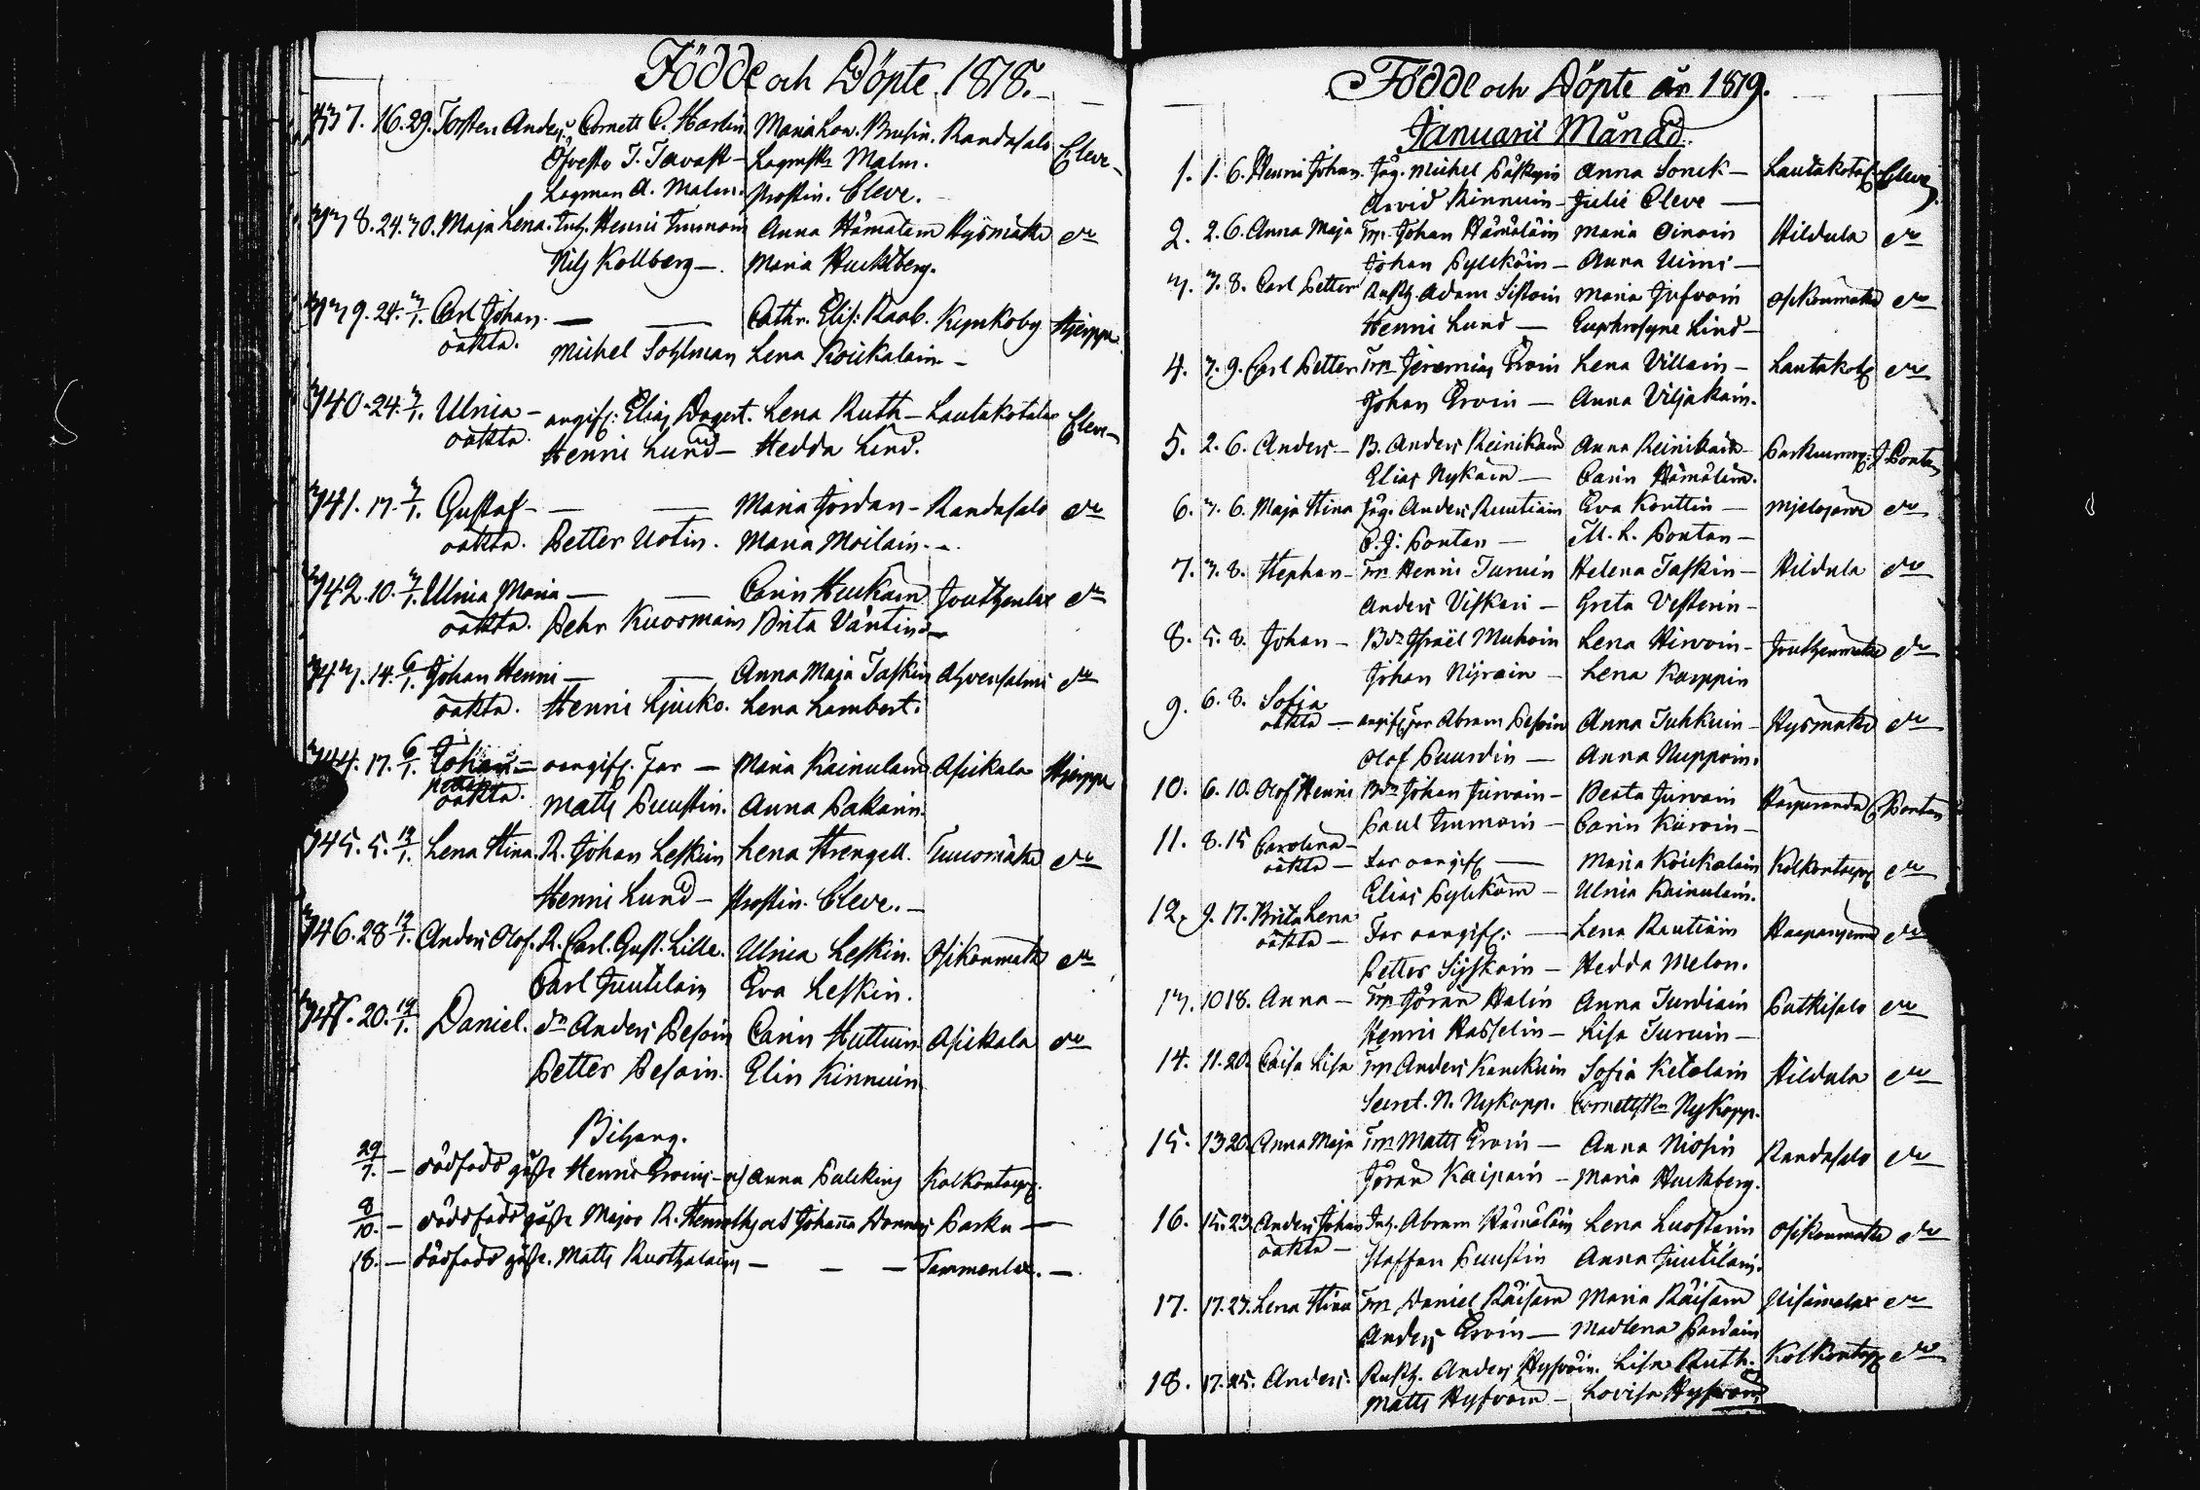 Födde och Döpte 1818.
337. 16. 29. Torsten Anders. Cornett C. Harlin Maria Lov. Brusin. Randasalo Cleve
Öfverste J. Tavast - Lagmsk: Malm.
Lagman A. Malm. Prostin. Cleve.
338. 24. 30. Maja Lena. Inh. Henric Immoin Anna Hämäläin Rysmäke do
Nils Kollberg - Maria Huckberg.
339. 24. 3/1. Carl Johan - - Cathr. Elis: Raab. Kymkoby Hjerppe
oäkta. Michel Tohlman Lena Koickalain -
340. 24. 3/1. Ulrica - angifs: Elias Dagert. Lena Ruth - Lautakotalax Cleve
oäkta. Henric Lund - Hedda Lind.
341. 17. 3/1. Gustaf - - Maria Jordan - Randasalo do
oäkta. Petter Uotin. Maria Moilain. -
342. 10. 3/1. Ulrica Maria - - Carin Heickäin Joutzenlax do
oäkta. Pehr Kuosmain Brita Väntin -
343. 14. 6/1. Johan Henric - - Anna Maja Taskin Ahvensalmi do
oäkta. Henric Ljucko. Lena Lambert.
344. 17. 6/1. Johan Petter oangifs. Far - Maria Kainulain Asickala Hjerppe
oäkta. Matts Puustin. Anna Pakarin.
345. 5. 13/1. Lena Stina. R. Johan Leskin Lena Strengell. Tuuomäke do
Henric Lund - Prostin. Cleve. -
346. 28 13/1. Anders Olof. R. Carl. Gust. Lille. Ulrica Leskin. Osikonmäke do
Carl Juutilain Eva Leskin.
347. 20. 19/1. Daniel. do Anders Pesoin Carin Huttuin Asickala do
Petter Pesoin. Elin Kinnuin
Bihang.
29/7. - dödfödd gosse Henric Ervins - af Anna Pulckins Kolkontaip.
8/10. - dödfödd gosse Major R. Johanna Parku -
18. - dödfödd gosse. Matts Ruotzalains - - - Tammenlax. -
Födde och Döpte år 1819.
Januarii Månad.
1. 1. 6. Henric Johan. Jäg. Michel Anna Sonck - Lautakotax Cleve
Arvid Kinnuin - Julie Cleve -
2. 2. 6. Anna Maja Trp. Johan Hämäläin Maria Oinoin Hildula do
Johan Pylckäin - Anna Uimi -
3. 3. 8. Carl Petter Rusth. Adam Sistoin Maria Jufvoin Osikonmäke do
Henric Lund - Euphrosyne Lind -
4. 3. 9. Carl Petter Trp Jeremias Ervoin Lena Villain - Lautakotx do
Johan Ervoin - Anna Viljakain.
5. 2. 6. Anders - B. Anders Reinikain Anna Reinikain - Parkuning: J Pontan
Elias Nykäin - Carin Hämäläin.
6. 3. 6. Maja Stina Jäg. Anders Ruutiain Eva Konttin - do
C. J: Pontan - M. L. Pontan -
7. 3. 8. Stephan - Trp Henric Turuin Helena Taskin - Hildula do
Anders Viskari - Greta Vesterin -
8. 5. 8. Johan - Bde Israël Muhoin Lena Hirvoin - Joutzenmäke do
Johan Nijrain - Lena Karppin
9. 6. 8. Sofia
oäkta - angifs Far Abram Pesoin Anna Tuhkuin - Rysmäke do
Olof Puurdin - Anna Nuppoin.
10. 6. 10. Olof Henric Bde Johan Jurvain - Beata Jurvain Haparanda C Pontan
Paul Immoin - Carin Kärvin -
11. 8. 15 Carolina -
oäkta - Far oangifs - Maria Koickalain Kolkontaip do
Elias Pylckäin - Ulrica Kainulain.
12. 9. 17. Brita Lena
oäkta - Far oangifs: - Lena Rautiain do
Petter Sijskoin - Hedda Melon.
13. 10 18. Anna - Trp Göran Halin Anna Turdiain Putkisalo do
Henric Hasselin - Lisa Turuin -
14. 11. 20. Caisa Lisa Trp Anders Kanckuin Sofia Ketolain Hildula do
Secret. N. Nykopp. Cornettskn Nykopp.
15. 13 20. Anna Maja Trp Matts Ervoin - Anna Nissin Randasalo do
Göran Kaipain - Maria Huckberg.
16. 15. 23. Anders Johan Inh. Abram Hämäläin Lena Luostarin Osikonmäke do
oäkta - Staffan Puustin Anna Juutilain.
17. 17. 23. Lena Stina Trp Daniel Räisäin Maria Räisäin Nisämalax do
Anders Ervoin - Madlena Pardain
18. 17. 25. Anders. Rusth. Anders Hyfvöin. Lisa Ruth. Kolkontaip do
Matts Hyfvöin - Lovisa Hyfvöin